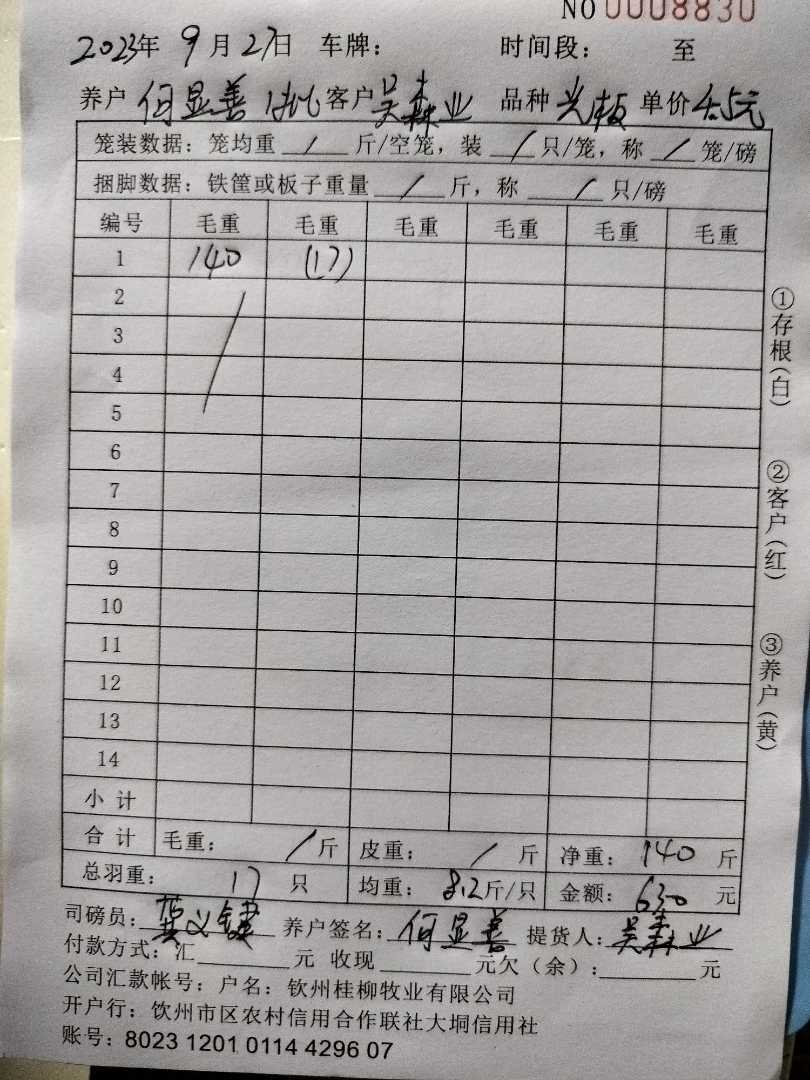 NO 0008830
2023年 9月27日 车牌： 时间段： 至
养户 何显善 1批 客户 吴森业 品种 光板 单价 4.5元
笼装数据：笼均重 / 斤/空笼，装 / 只/笼，称 / 笼/磅
捆脚数据：铁筐或板子重量 / 斤，称 / 只/磅
编号 毛重 毛重 毛重 毛重 毛重 毛重
1 140 (17)
2
3
4
5
6
7
8
9
10
11
12
13
14
小计
合计 毛重： / 斤 皮重： / 斤 净重： 140 斤
总羽重： 17 只 均重： 8.2斤/只 金额： 630 元
司磅员： 龚义键 养户签名： 何显善 提货人： 吴森业
付款方式：汇 元 收现 元欠（余）： 元
公司汇款帐号：户名：钦州桂柳牧业有限公司
开户行：钦州市区农村信用合作联社大垌信用社
账号：8023 1201 0114 4296 07
①存根（白）
②客户（红）
③养户（黄）